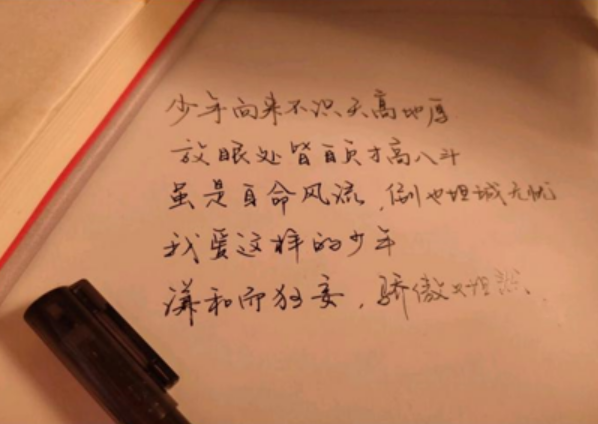 少年向来不识天高地厚
放眼处皆自负才高八斗
虽是自命风流，倒也坦诚无忧
我爱这样的少年
谦和而狂妄，骄傲又坦诚